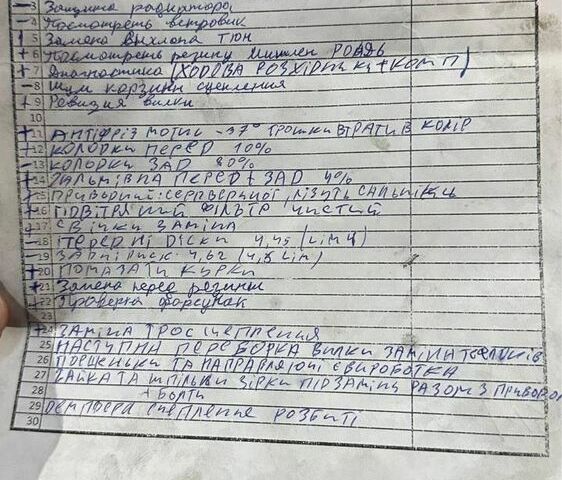 - 3 Защита радиатора
- 4 Посмотреть ветровик
5 Замена выхлопа тюн
+ 6 Посмотреть резину Мишлен РОАДЬ
+ 7 Диагностика (ХОДОВА РОЗХІДНІКІ + КОМП)
- 8 Шум корзини сцепления
+ 9 Ревизия вилки
10
+ 11 АНТІФРІЗ МОТИЛ -37° ТРОШКИ ВТРАТИВ КОЛІР
+ 12 КОЛОДКИ ПЕРЕД 10%
- 13 КОЛОДКИ ЗАД 80%
+ 14 ГАЛЬМІВНА ПЕРЕД + ЗАД 4%
15 ПРИВОДНИЙ: СЕРПВЕРЦІНОЇ, ЛІЗУТЬ САЛЬНІКИ
+ 16 ПОВІТРЯНИЙ ФІЛЬТР ЧИСТИЙ
+ 17 СВІЧКИ ЗАМІНА
- 18 ПЕРЕДНІ ДІСКИ 4,45 (LIM 4)
- 19 ЗАДНІ ДИСК 4,62 (4,5 LIM)
+ 20 ПОМАЗАТИ КУРКИ
+ 21 Замена перед резины
+ 22 Проверка форсунак
+ 24 ЗАМІНА ТРОС ЩЕПЛЕНИЯ
25 НАСТУПНА ПЕРЕБОРКА ВИЛКИ ЗАМІНА
26 ПОРШЕНЬКИ ТА НАПРАВЛЯЮЧІ Є ВИРОБОТКА
27 ГАЙКА ТА ШПІЛЬКИ ЗІРКИ ПІД ЗАМІНУ РАЗОМ З ПРИВОДОМ
28 + БОЛТИ
29 ДЕМПФЕРА СЦЕПЛЕНИЕ РОЗБИТІ
30